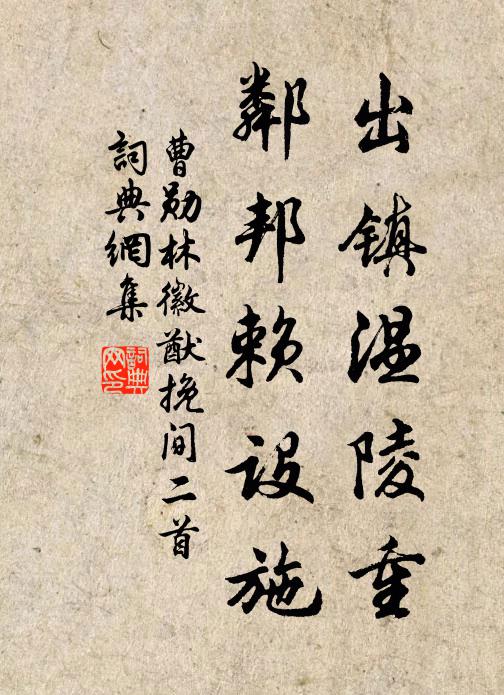 出镇温陵重
鄰邦赖設施
曹勋林徽猷挽词二首
詞典網集
詞典網印